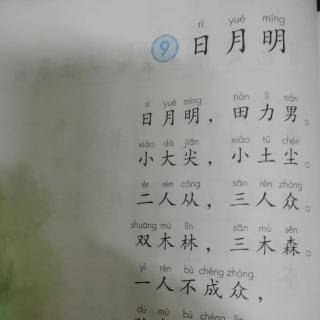 rì yuè míng
9 日月明
rì yuè míng tián lì nán
日月明，田力男。
xiǎo dà jiān xiǎo tǔ chén
小大尖，小土尘。
èr rén cóng sān rén zhòng
二人从，三人众。
shuāng mù lín sān mù sēn
双木林，三木森。
yì rén bù chéng zhòng
一人不成众，
dú mù bù chéng lín